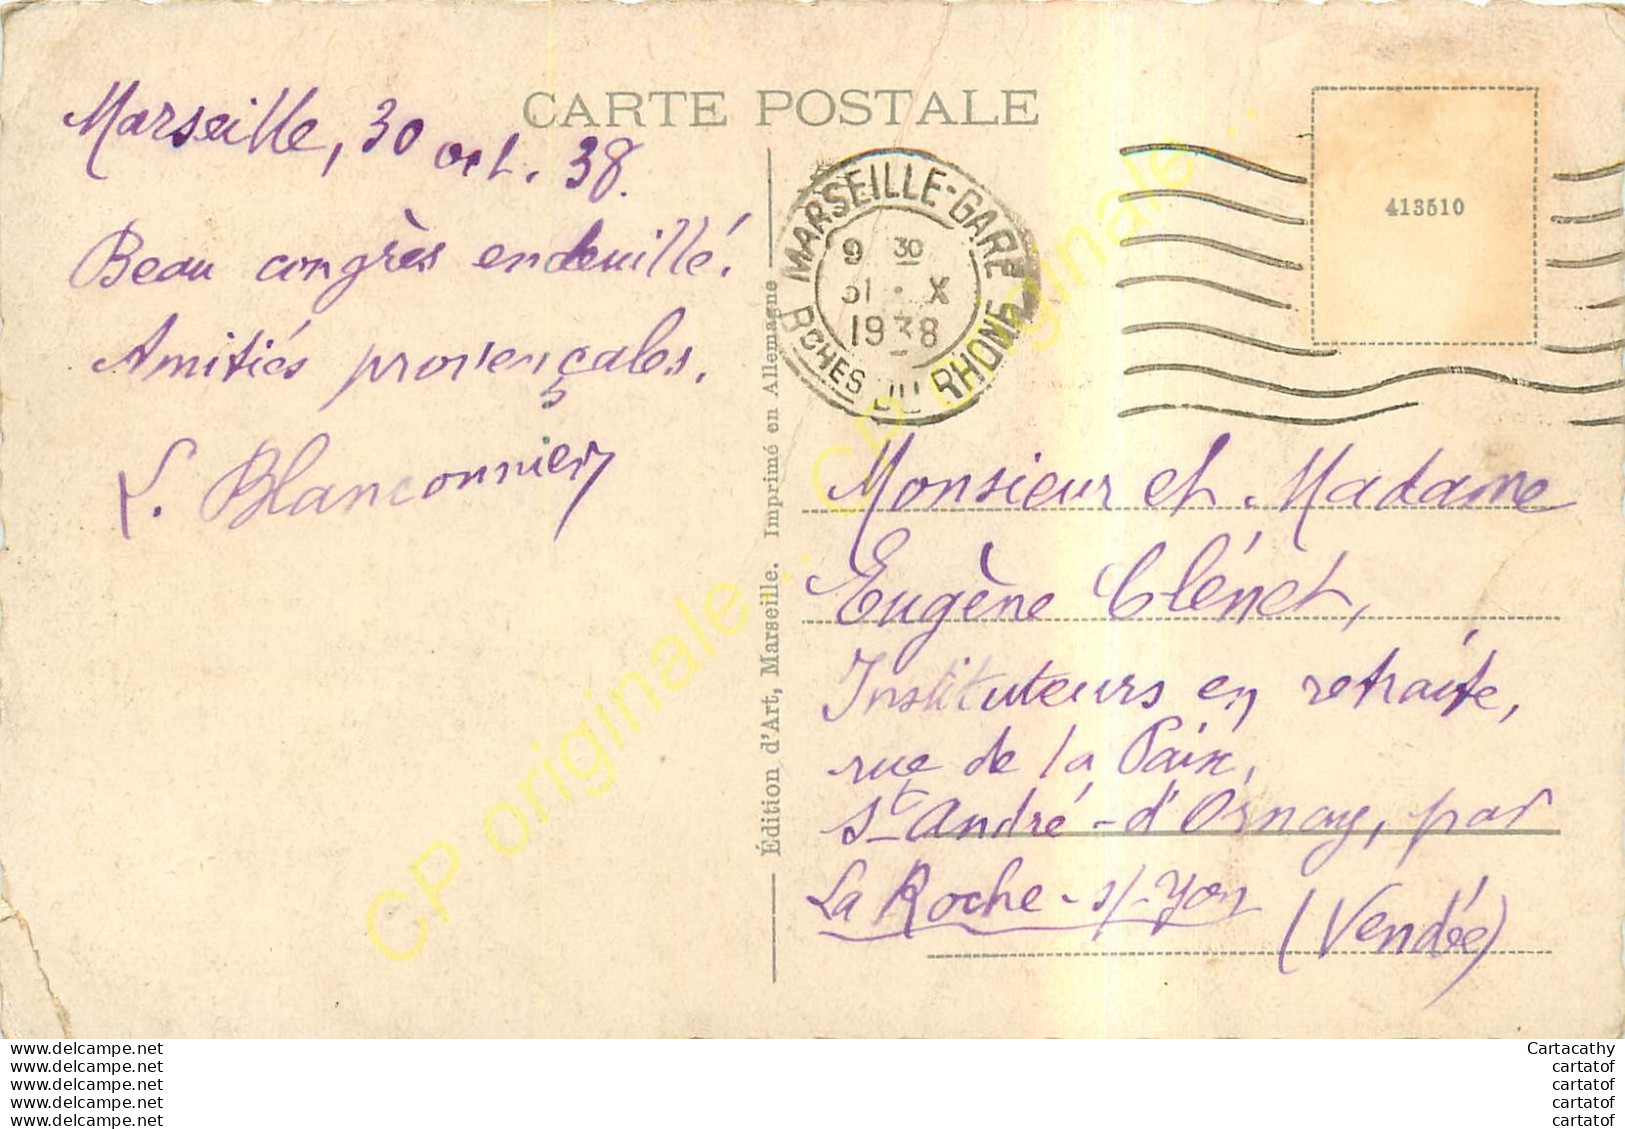 CARTE POSTALE
Marseille, 30 oct. 38.
Beau congrès endeuillé.
Amitiés provençales.
L. Blanconnier
Édition d'Art, Marseille. Imprimé en Allemagne
MARSEILLE-GARE
9 30
31 . X
1938
BCHES DU RHONE
413510
Monsieur et Madame
Eugène Clénet,
Instituteurs en retraite,
rue de la Paix,
St André-d'Ornay, par
La Roche-s/-Yon
(Vendée)
CP originale...
CP originale...
www.delcampe.net
www.delcampe.net
www.delcampe.net
www.delcampe.net
www.delcampe.net
Cartacathy
cartatof
cartatof
cartatof
cartatof